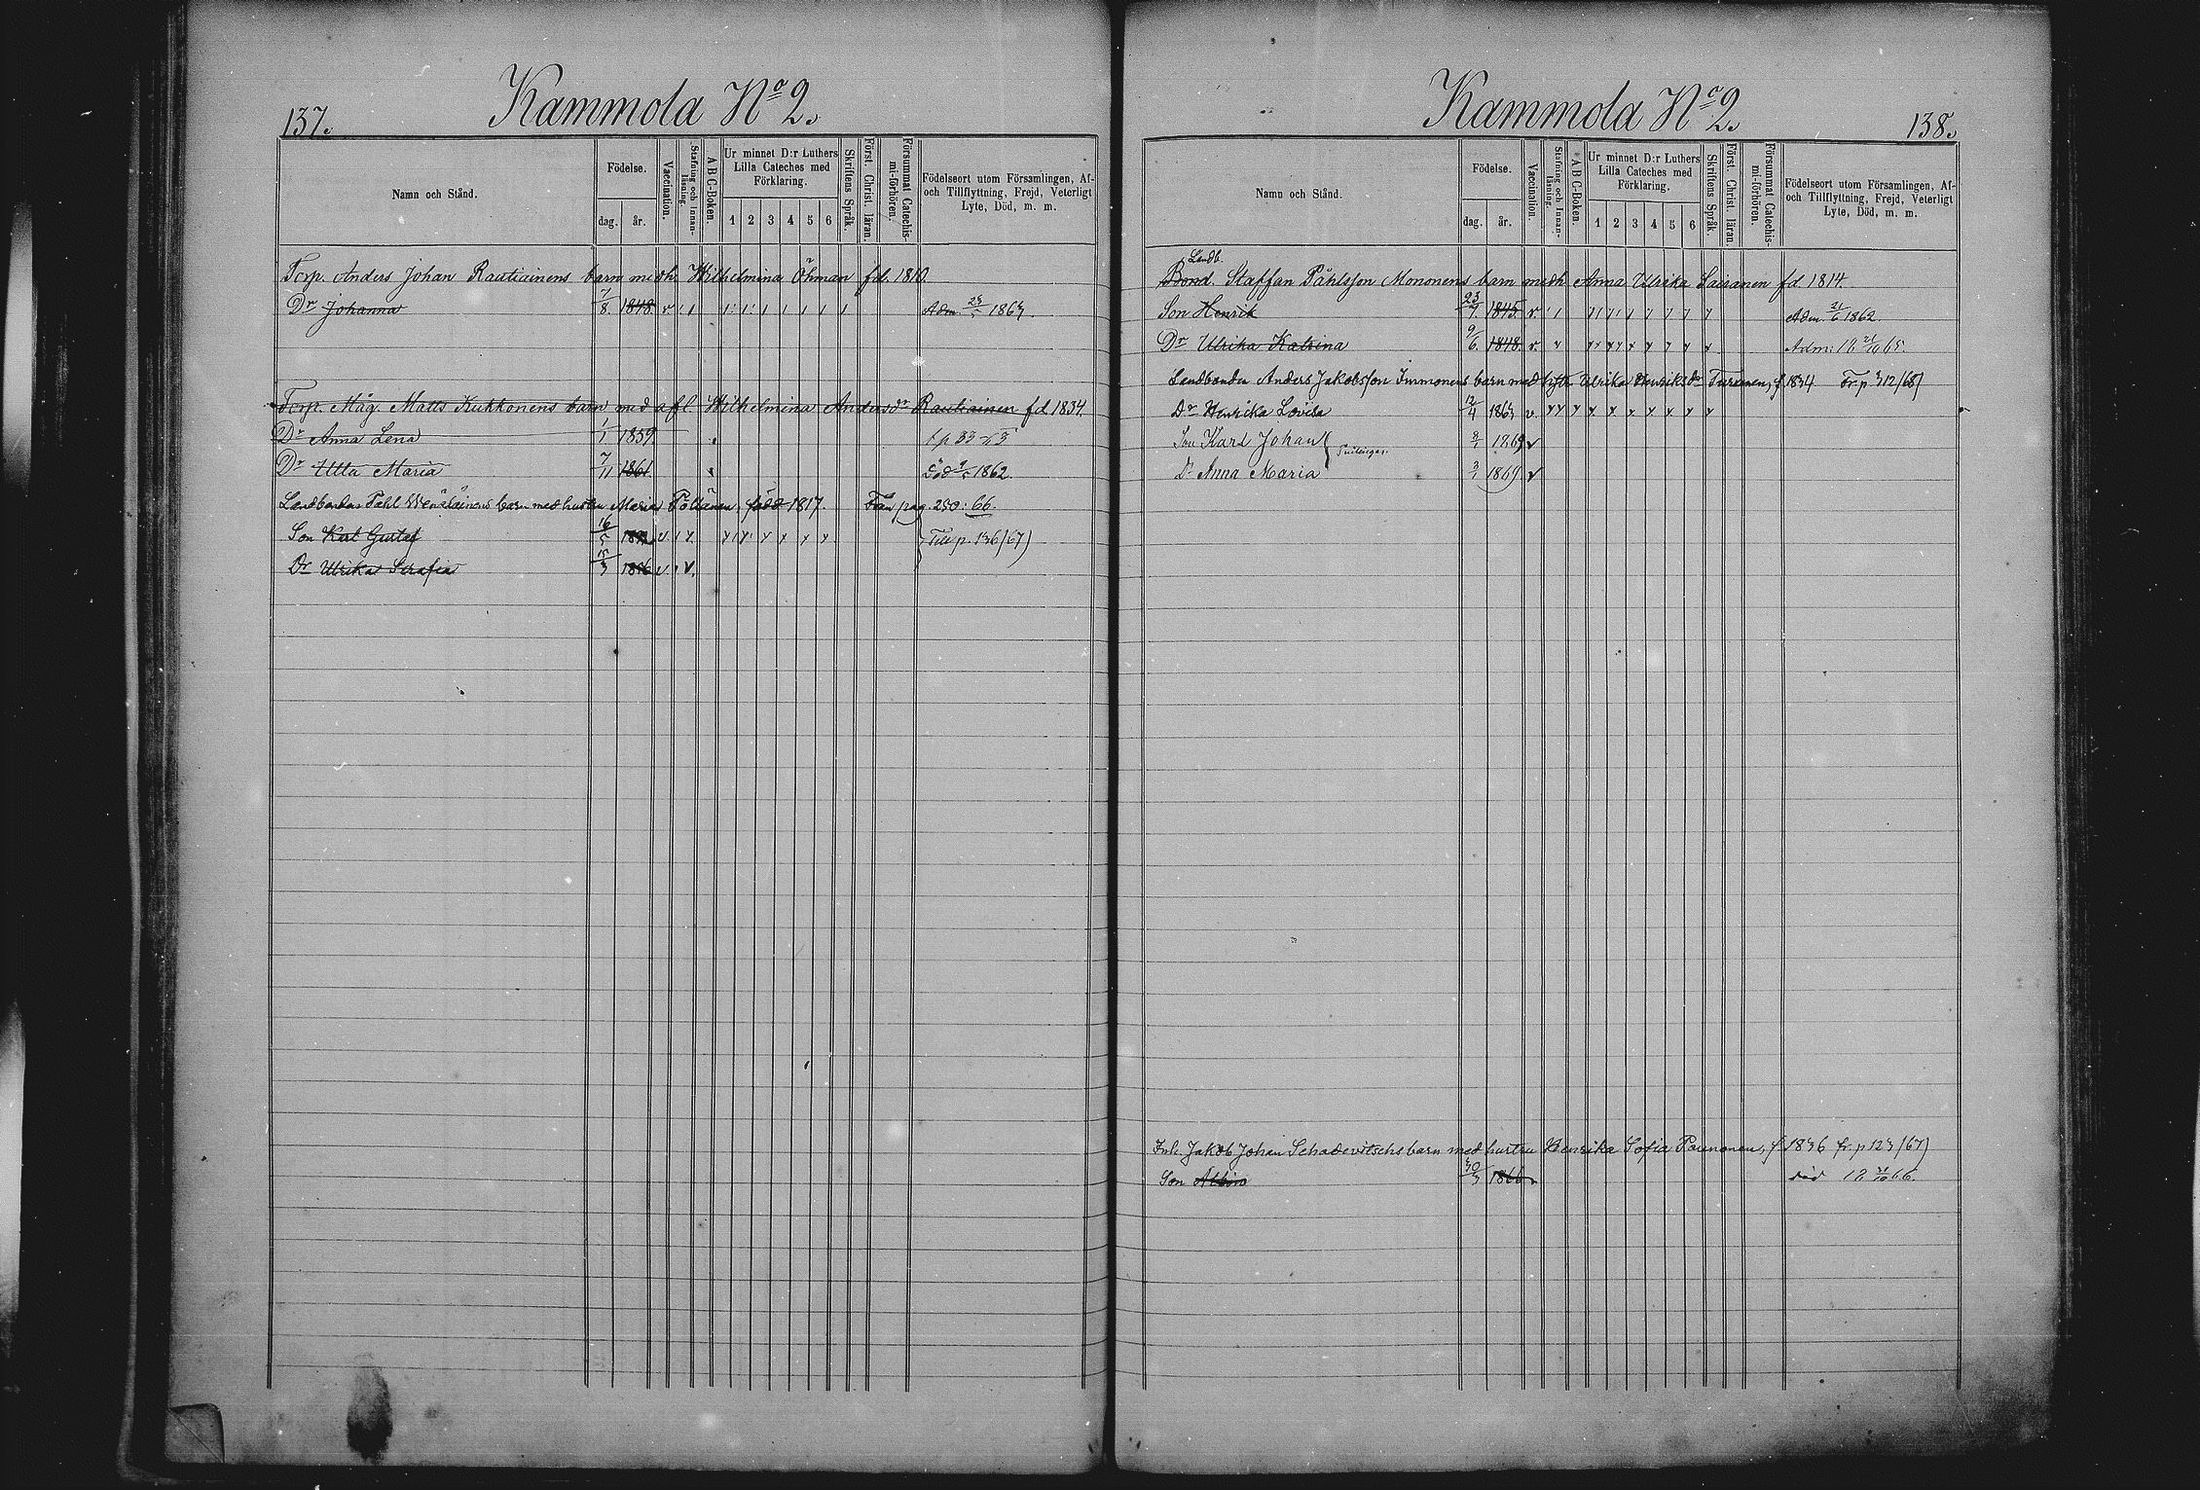 137.
Kammola No 2.
Namn och Stånd.
Födelse.
dag.
år.
Vaccination.
Stafning och Innanläsning.
A B C-Boken.
Ur minnet D:r Luthers
Lilla Cateches med
Förklaring.
1 2 3 4 5 6
Skriftens Språk.
Först. Christ. läran.
Försummat Catechismi-förhören.
Födelseort utom Församlingen, Af-
och Tillflyttning, Frejd, Veterligt
Lyte, Död, m. m.
Torp. Anders Johan Rautiainens barn m. Wilhelmina Öhman fd. 1810.
Dr Johanna 7/8 1848 v Adm. 1863
Torp. Måg. Matts Kukkonens barn med afl. Wilhelmina Andersdr Rautiainen fd 1834.
Dr Anna Lena 1/1 1859
Dr Ulla Maria 7/11 1861 Död 1862.
Landbonden Påhl barn med hustru Maria född 1817. Från pag. 250: 66.
Son Karl Gustaf 16/5 Till p. 136/67)
Dr Ulrika Serafia 15/3 1856
Kammola No 2.
138.
Namn och Stånd.
Födelse.
dag.
år.
Vaccination.
Stafning och Innanläsning.
A B C-Boken.
Ur minnet D:r Luthers
Lilla Cateches med
Förklaring.
1 2 3 4 5 6
Skriftens Språk.
Först. Christ. läran.
Försummat Catechismi-förhören.
Födelseort utom Församlingen, Af-
och Tillflyttning, Frejd, Veterligt
Lyte, Död, m. m.
Landb.
Bond. Staffan Påhlsson Mononens barn m. Anna Ulrika Lairanen fd 1814.
Son Henrik 23/7 1845. v Adm. 21/6 1862.
Dr Ulrika Katrina 9/6 1848. v Adm: 18 21/10 65.
Landbonden Anders Jakobsson Immonens barn med Ulrika Henriksdr Turunen, f. 1834 Fr. p 312/68)
Dr Henrika Lovisa 12/4 1863 v
Son Karl Johan 3/1 1869 v
Tvillingar.
Dr Anna Maria 3/1 1869 v
Inh. Jakob Johan Schadevitschs barn med hustru Henrika Sofia Paunonen, f. 1836 fr. p 123/67)
Son Albin 30/3 1866 död 18 31/10 66.